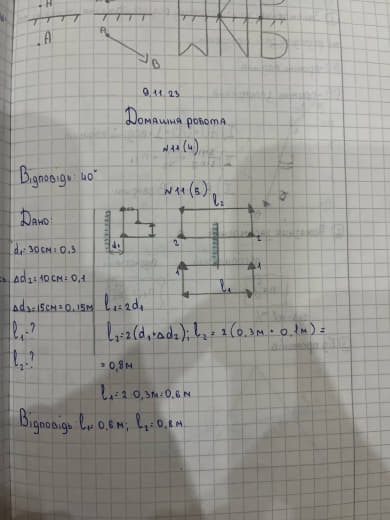 A
A
A
B
WKB
9.11.23
Домашня робота
№11(4)
Відповідь: 40°
№11(5)
Дано:
d₁=30см=0,3
Δd₂=10см=0,1
Δd₃=15см=0,15м
l₁-?
l₂-?
d₁
l₂
2 2
1 1
l₁
l₁=2d₁
l₂=2(d₁+Δd₂); l₂=2(0,3м+0,1м)=
=0,8м
l₁=2·0,3м=0,6м
Відповідь l₁=0,6м; l₂=0,8м